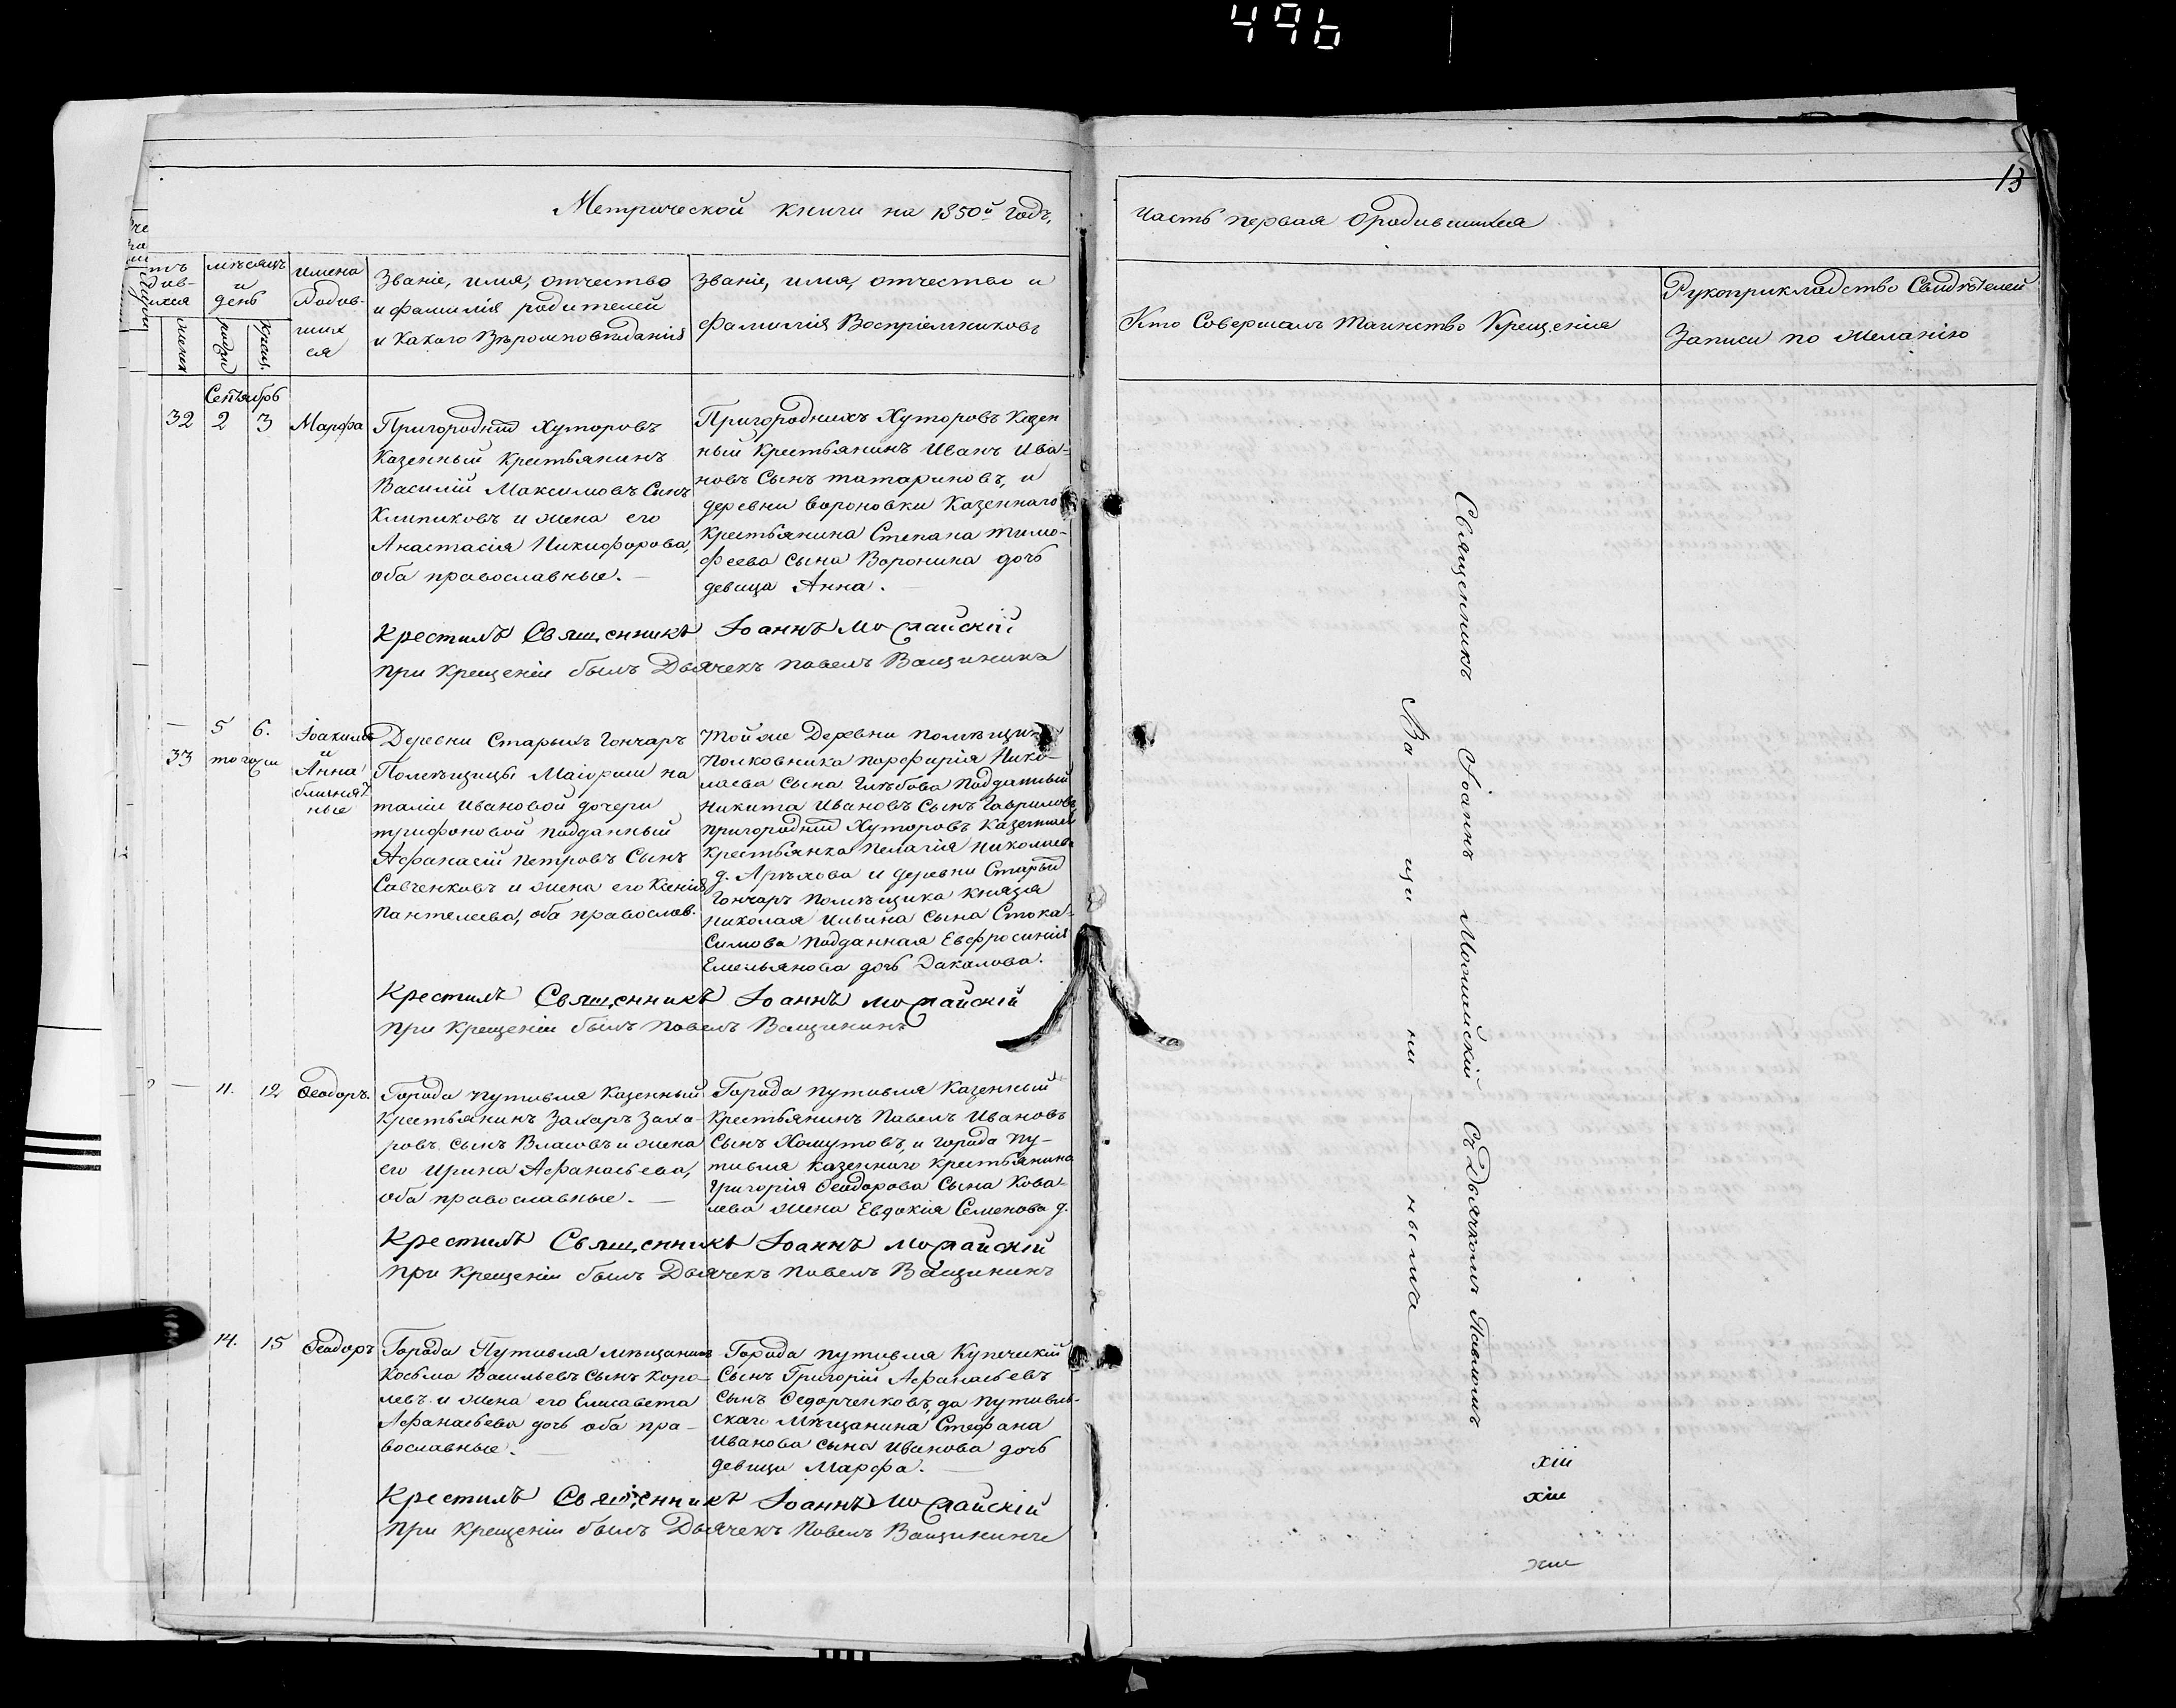 496
13
Метрической книги на 1850й годъ,
часть первая о родившихся
мѣсяцъ и день
рожд
крещ.
женск
имена Родив-
ших
ся
Званіе, имя, отчество
и фамилія родителей
и какого Вѣроисповѣданія
Званіе, имя, отчество и
фамилія Воспріемниковъ
Кто Совершалъ Таинство Крещенія
Рукоприкладство Свидѣтелей
Записи по желанію
Сентябрь
32 2 3 Марфа
Пригородныхъ Хуторовъ
Казенный крестьянинъ
Василій Максимовъ Сынъ
Клипиковъ и жена его
Анастасія Никифорова,
оба православные.
Пригородныхъ Хуторовъ Казен
ный крестьянинъ Иванъ Ива-
новъ Сынъ татариновъ, и
деревни вороновки Казеннаго
крестьянина Степана тимо-
феева сына Воронина дочь
девица Анна.
Крестилъ Священникъ Іоаннъ Можайскій
при крещеніи былъ Дьячекъ павелъ Ващининъ
— 5 6. Іоакимъ
и
33 того же Анна
близнят
ные
Деревни Старыхъ Гончаръ
Помѣщицы Маіорши на
таліи Ивановой дочери
трифоновой подданный
Афанасій петровъ Сынъ
Савченковъ и жена его Ксенія
Пантелеева, оба православ.
той же Деревни помѣщика
Полковника порфирія Нико-
лаева сына Глѣбова подданный
никита Ивановъ сынъ Гавриловъ
пригородныхъ Хуторовъ казенная
крестьянка пелагія николаева
д. Арѣхова и деревни Старыхъ
Гончаръ помѣщика князя
николая ильина сына Стока-
симова подданная Евфросинія
Емельянова дочь Дакалова.
Крестилъ Священникъ Іоаннъ Можайскій
при крещеніи былъ павелъ Ващининъ
— 11. 12 Феодоръ.
Города путивля казенный
крестьянинъ Захаръ Заха-
ровъ сынъ Власовъ и жена
его Ирина Афанасьева,
оба православные. —
Города путивля казенный
крестьянинъ павелъ Ивановъ
сынъ Хомутовъ, и города пу-
тивля казеннаго крестьянина
григорія Феодорова Сына Кова-
лева жена Евдокія Семенова д.
Крестилъ Священникъ Іоаннъ Можайскій
при крещеніи былъ Дьячекъ павелъ Ващининъ
14. 15 Феодоръ
Города Путивля мѣщанинъ
Косьма Васильевъ сынъ Коро-
левъ и жена его Елисавета
Афанасьева дочь оба пра-
вославные.
Города путивля Купеческій
Сынъ Григорій Афанасьевъ
сынъ Федорченковъ, да путивль-
скаго мѣщанина Стефана
Иванова сына Иванова дочь
девица Марфа. —
Крестилъ Священникъ Іоаннъ Можайскій
при крещеніи былъ Дьячекъ павелъ Ващининъ
Священникъ Іоаннъ Можайскій съ Дьячкомъ Павломъ
Ва — щи — ни — нымъ
xiii
xiii
xiii